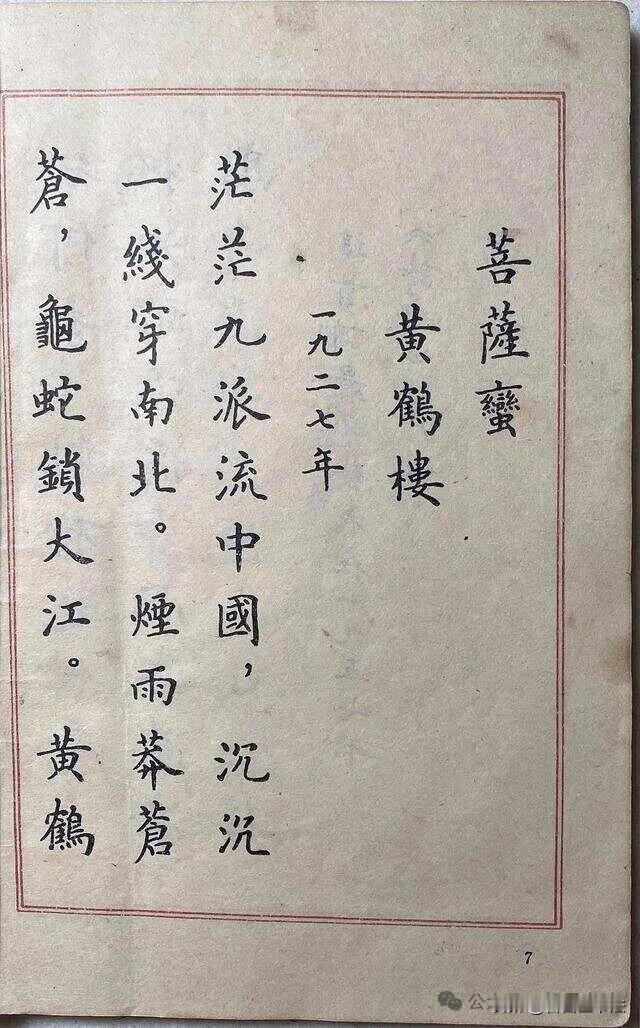 菩薩蠻
黄鶴樓
一九二七年
茫茫九派流中國，沉沉
一綫穿南北。煙雨莽蒼
蒼，龜蛇鎖大江。黄鶴
7
公